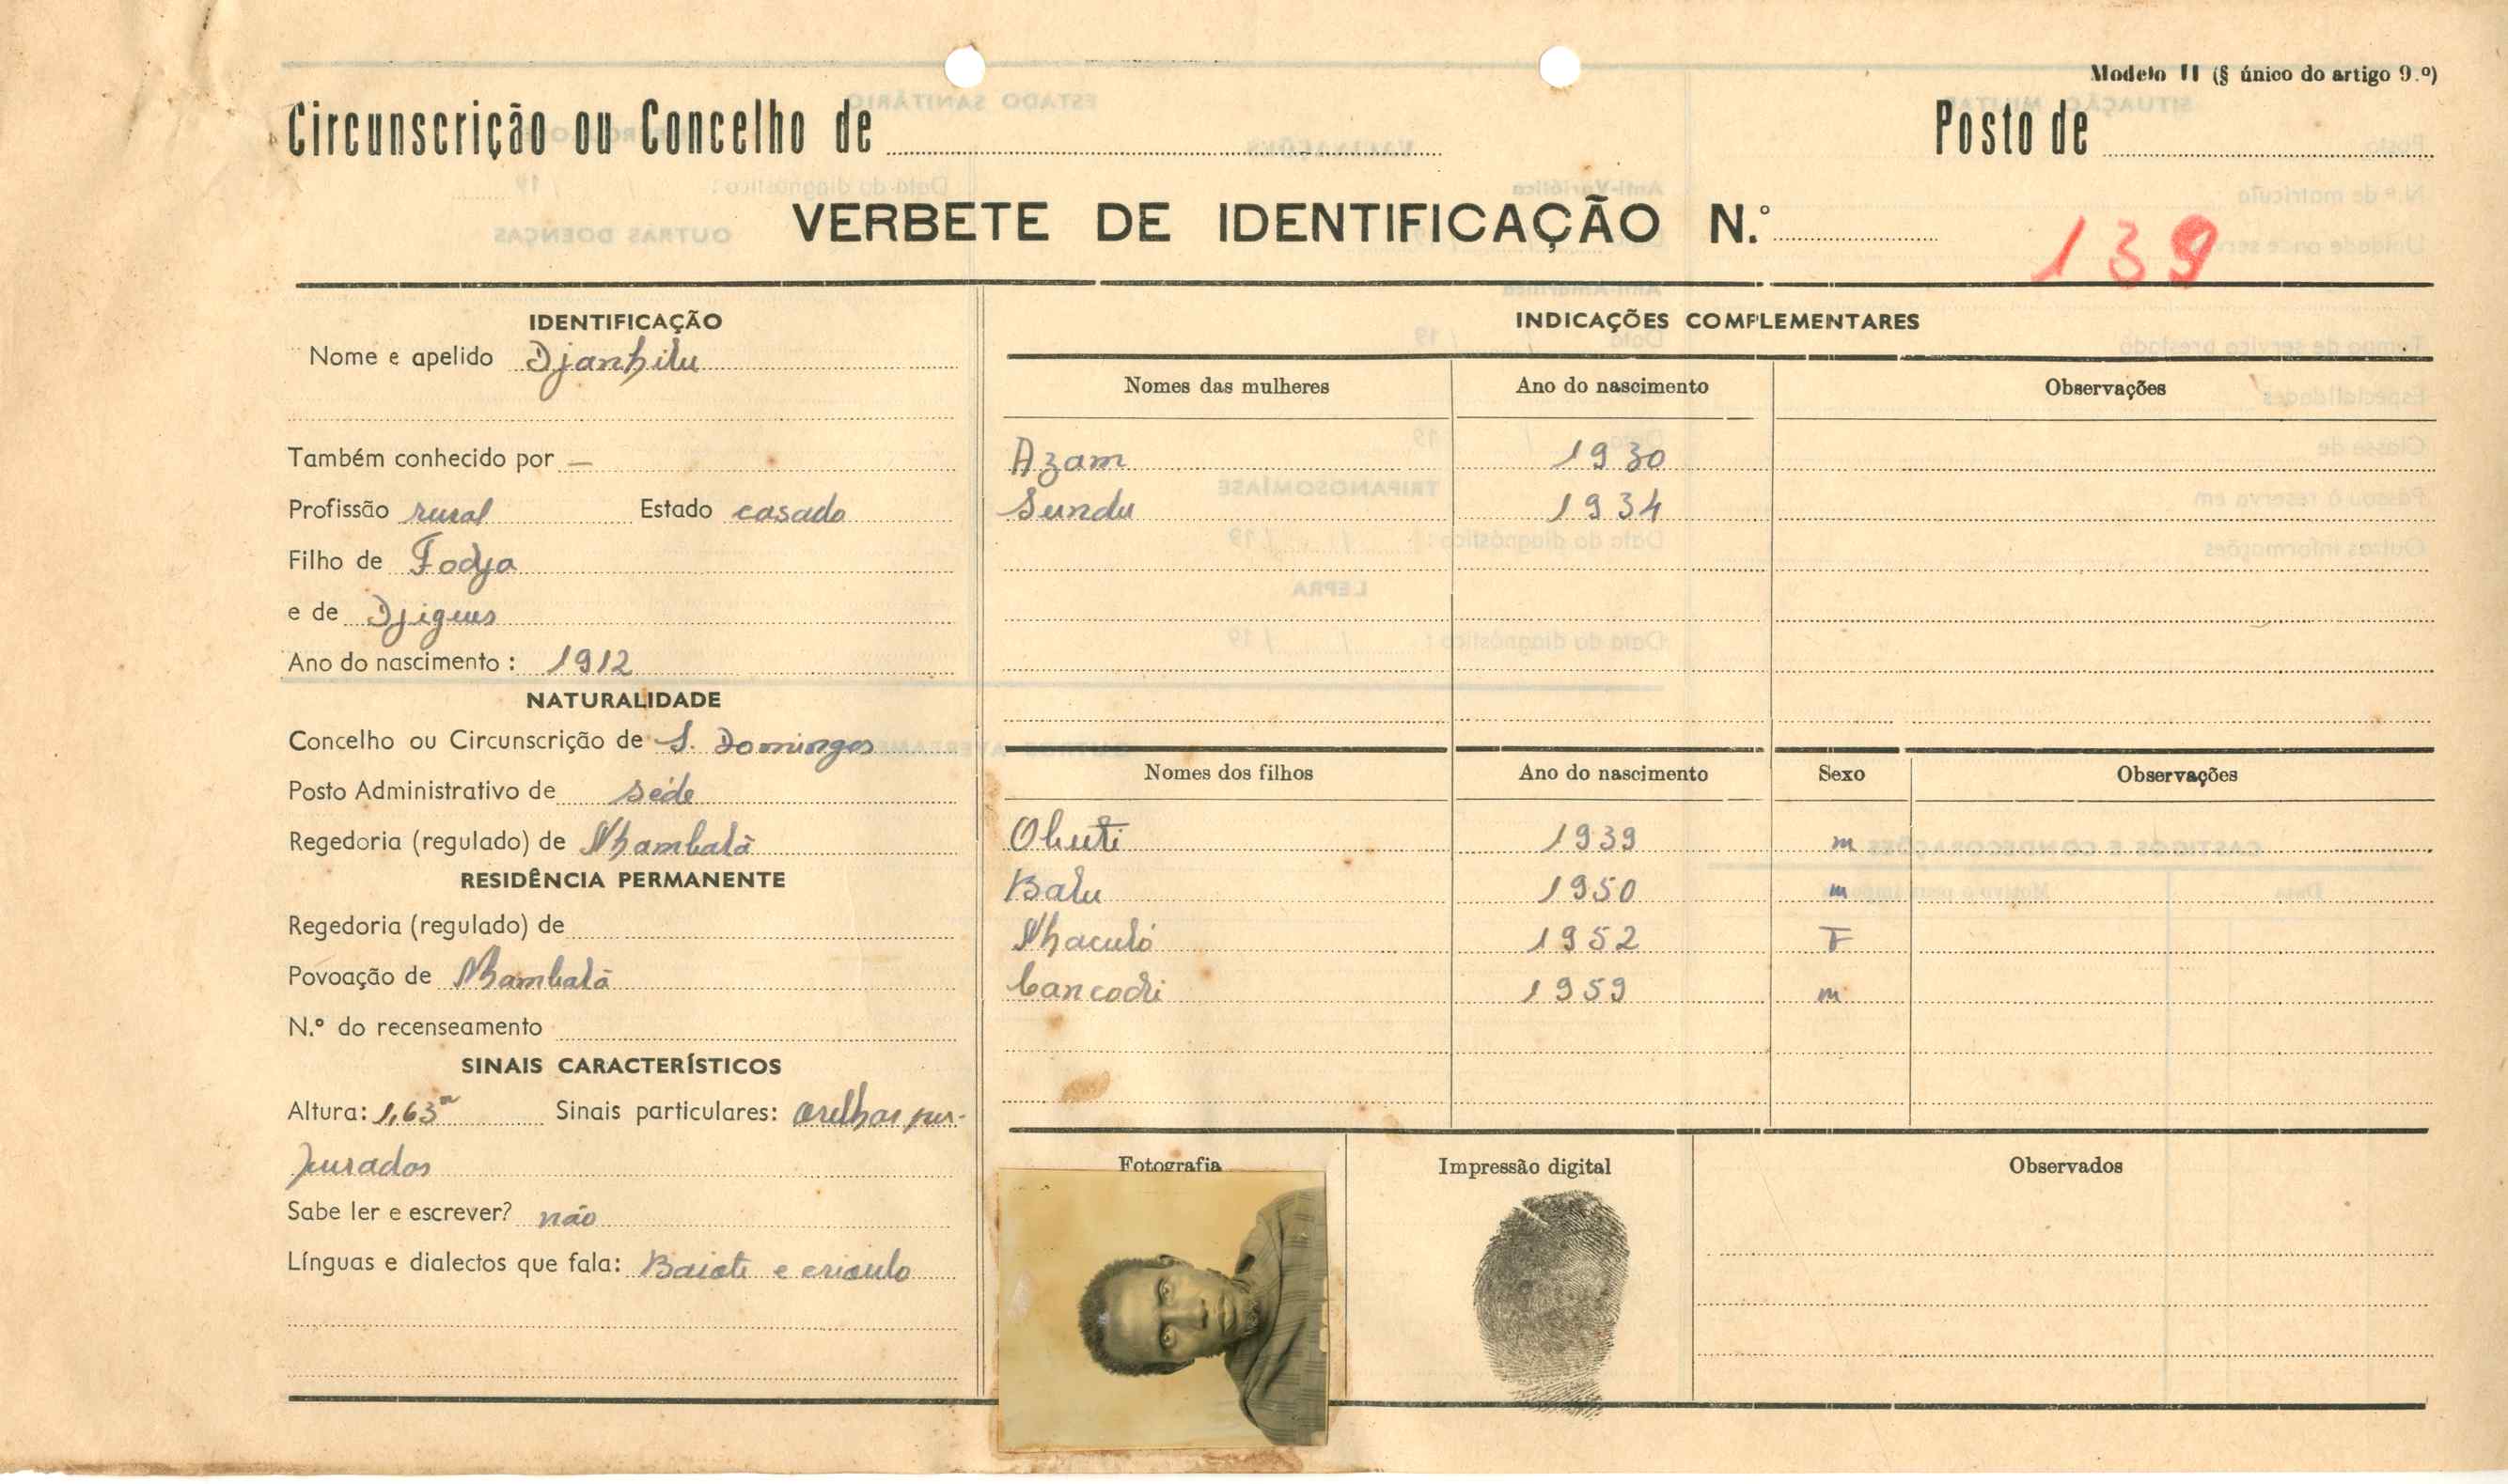 Modelo II (§ único do artigo 9.º)
Circunscrição ou Concelho de
Posto de
VERBETE DE IDENTIFICAÇÃO N.º
139
IDENTIFICAÇÃO
Nome e apelido Djanhilu
Também conhecido por —
Profissão rural Estado casado
Filho de Fodja
e de
Ano do nascimento: 1912
NATURALIDADE
Concelho ou Circunscrição de S. Domingos
Posto Administrativo de séde
Regedoria (regulado) de Nhambalã
RESIDÊNCIA PERMANENTE
Regedoria (regulado) de
Povoação de Nhambalã
N.º do recenseamento
SINAIS CARACTERÍSTICOS
Altura: 1,63m Sinais particulares: orelhas per-
furados
Sabe ler e escrever? não
Línguas e dialectos que fala: Baiote e crioulo
INDICAÇÕES COMPLEMENTARES
Nomes das mulheres Ano do nascimento Observações
Azam 1930
Sundu 1934
Nomes dos filhos Ano do nascimento Sexo Observações
1939 m
Balu 1950 m
Nhaculó 1952 F
1959 m
Fotografia Impressão digital Observados